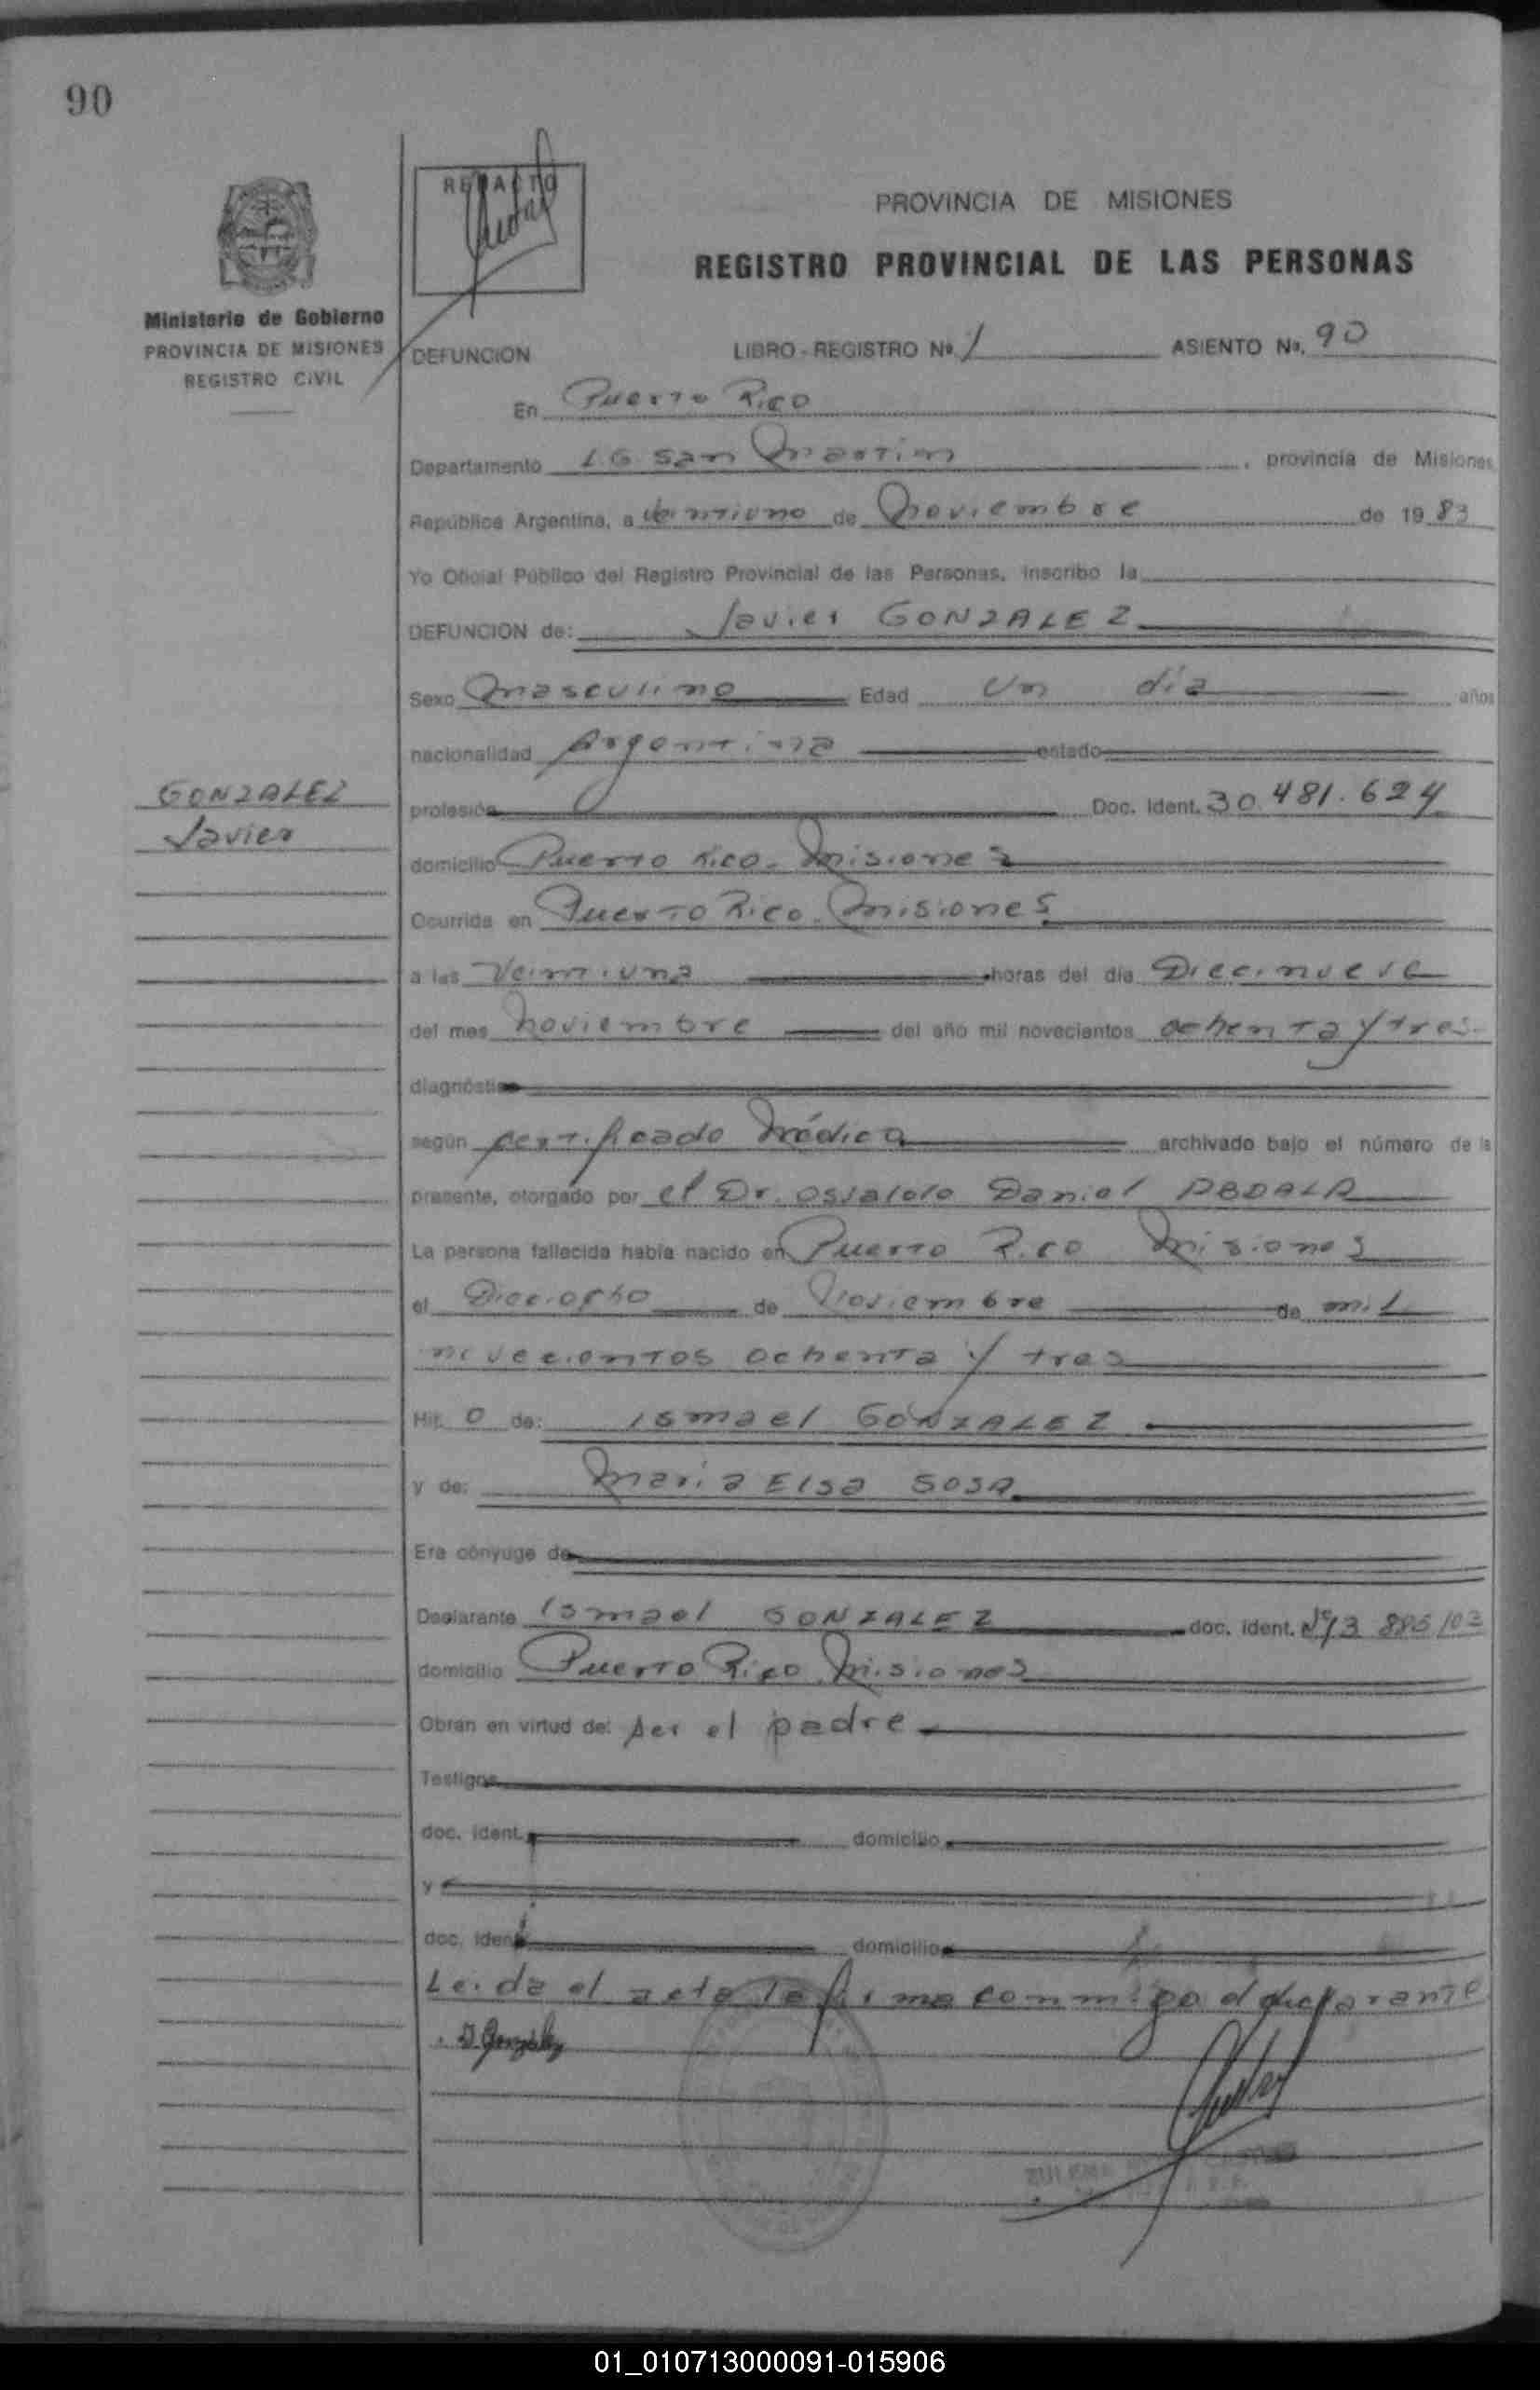 90
REDACTO
PROVINCIA DE MISIONES
REGISTRO PROVINCIAL DE LAS PERSONAS
Ministerio de Gobierno
PROVINCIA DE MISIONES
REGISTRO CIVIL
DEFUNCION LIBRO - REGISTRO Nº 1 ASIENTO Nº. 90
En Puerto Rico
Departamento L.G. San Martin , provincia de Misiones
República Argentina, a veintiuno de Noviembre de 1983
Yo Oficial Público del Registro Provincial de las Personas, inscribo la
DEFUNCION de: Javier GONZALEZ
Sexo Masculino Edad Un día años
nacionalidad Argentina estado
GONZALEZ
Javier
profesión Doc. Ident. 30.481.624
domicilio Puerto Rico - Misiones
Ocurrida en Puerto Rico - Misiones
a las Veintiuna horas del día Diecinueve
del mes Noviembre del año mil novecientos ochenta y tres
diagnóstico
según certificado Médico archivado bajo el número de la
presente, otorgado por el Dr. Osvaldo Daniel ABDALA
La persona fallecida había nacido en Puerto Rico Misiones
el Dieciocho de Noviembre de mil
novecientos ochenta y tres
Hij o de: Ismael GONZALEZ
y de: Maria Elsa SOSA
Era cónyuge de
Declarante Ismael GONZALEZ doc. ident.
domicilio Puerto Rico Misiones
Obran en virtud de: ser el padre
Testigos
doc. ident. domicilio
y
doc. ident. domicilio
Leida el acta la firma conmigo el declarante
I. González
01_010713000091-015906